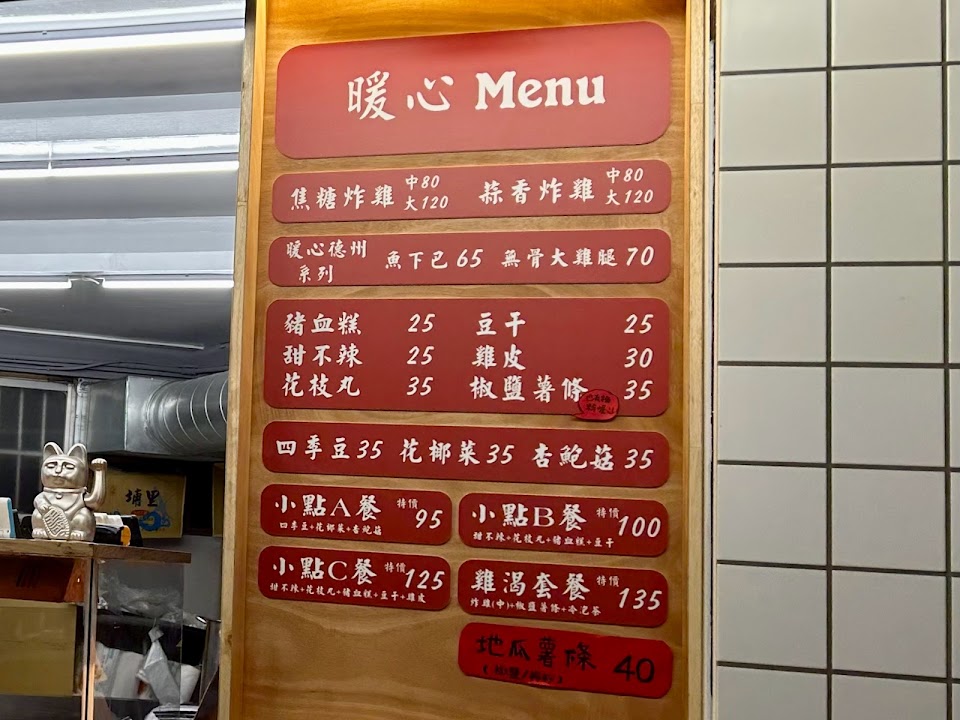 暖心 Menu
焦糖炸雞 中80 大120 蒜香炸雞 中80 大120
暖心德州系列 魚下巴 65 無骨大雞腿 70
豬血糕 25 豆干 25
甜不辣 25 雞皮 30
花枝丸 35 椒鹽薯條 35
四季豆 35 花椰菜 35 杏鮑菇 35
小點A餐 特價 95
四季豆+花椰菜+杏鮑菇
小點B餐 特價 100
甜不辣+花枝丸+豬血糕+豆干
小點C餐 特價 125
甜不辣+花枝丸+豬血糕+豆干+雞皮
雞渴套餐 特價 135
炸雞(中)+椒鹽薯條+冷泡茶
地瓜薯條 40
埔里